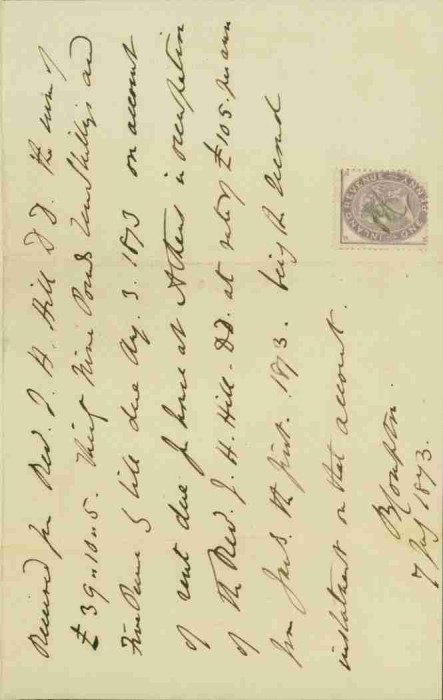 Received from Rev. J. H. Hill D.D. the sum of
£39„10„5. Thirty Nine Pounds Ten Shillings and
Five Pence by bill due Aug. 3. 1873 on account
of rent due for house at Athens in occupation
of the Rev. J. H. Hill. D.D. at rate of £105. per ann
from Jany. the first. 1873. being the second
instalment on that account.
7 July 1873.
INLAND REVENUE ONE